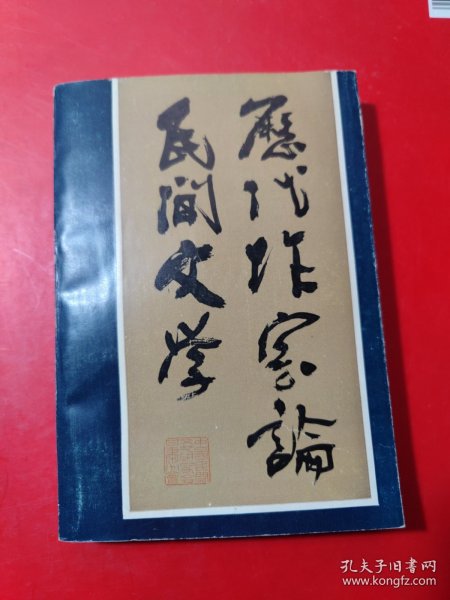 歷代作家論
民间文学
孔夫子旧书网
www.kongfz.com